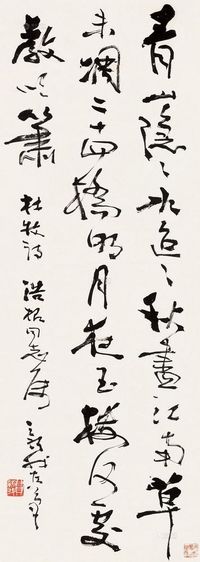 青山隱〻水迢〻秋盡江南草
未凋二十四橋明月夜玉樓何處
教吹簫
杜牧詩 浩同志屬 新我左筆